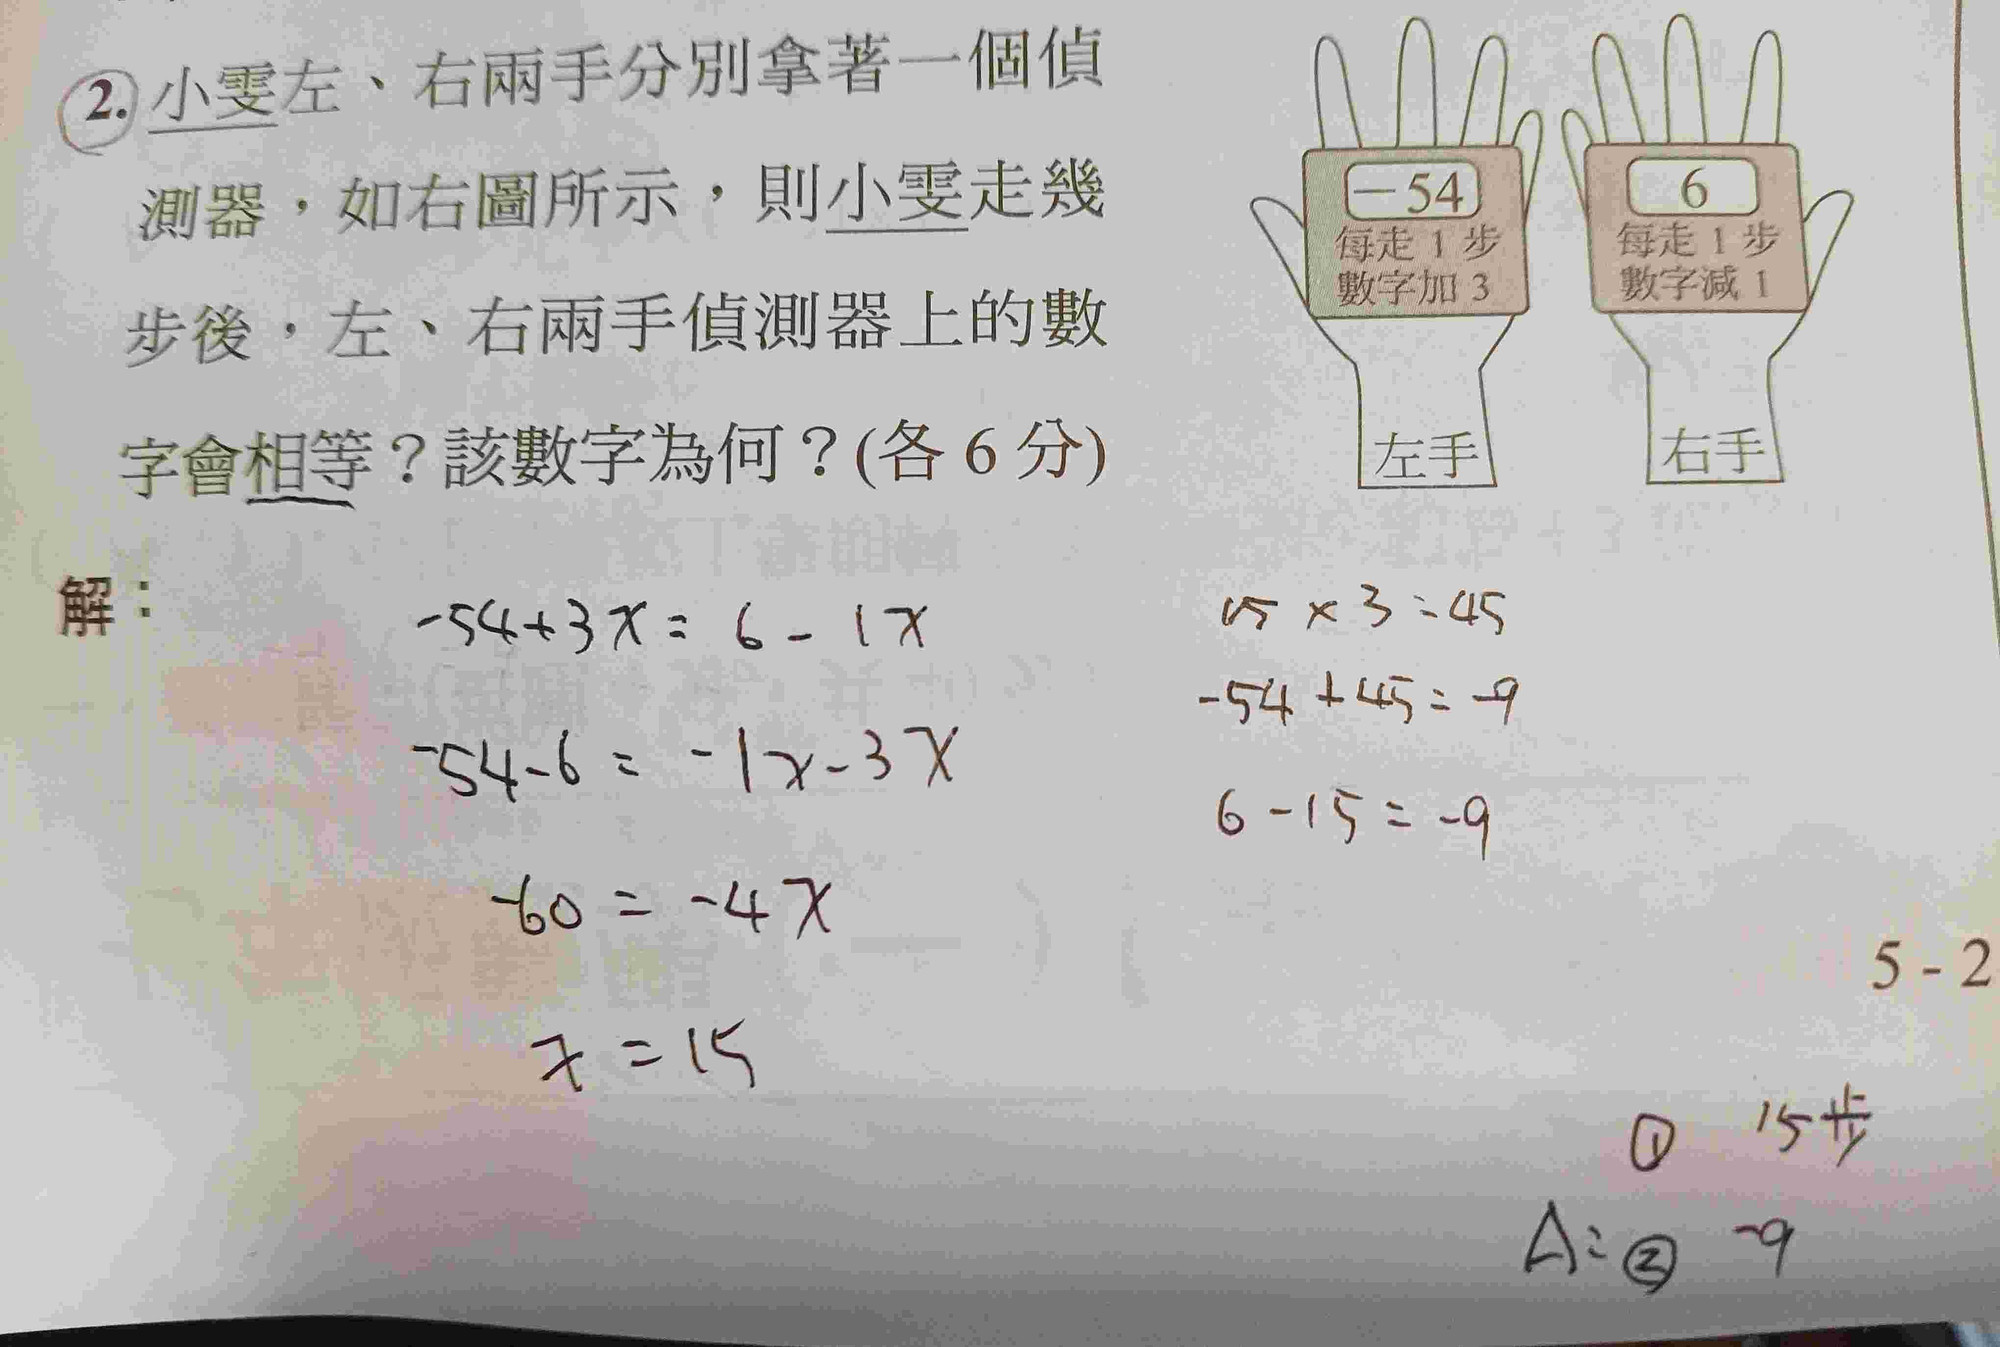 2. 小雯左、右兩手分別拿著一個偵
測器，如右圖所示，則小雯走幾
步後，左、右兩手偵測器上的數
字會相等？該數字為何？(各 6 分)
－54
每走 1 步
數字加 3
左手
6
每走 1 步
數字減 1
右手
解：
-54+3x = 6 - 1x
-54-6 = -1x-3x
-60 = -4x
x = 15
15 × 3 = 45
-54 + 45 = -9
6 - 15 = -9
5 - 2
① 15步
A: ② -9